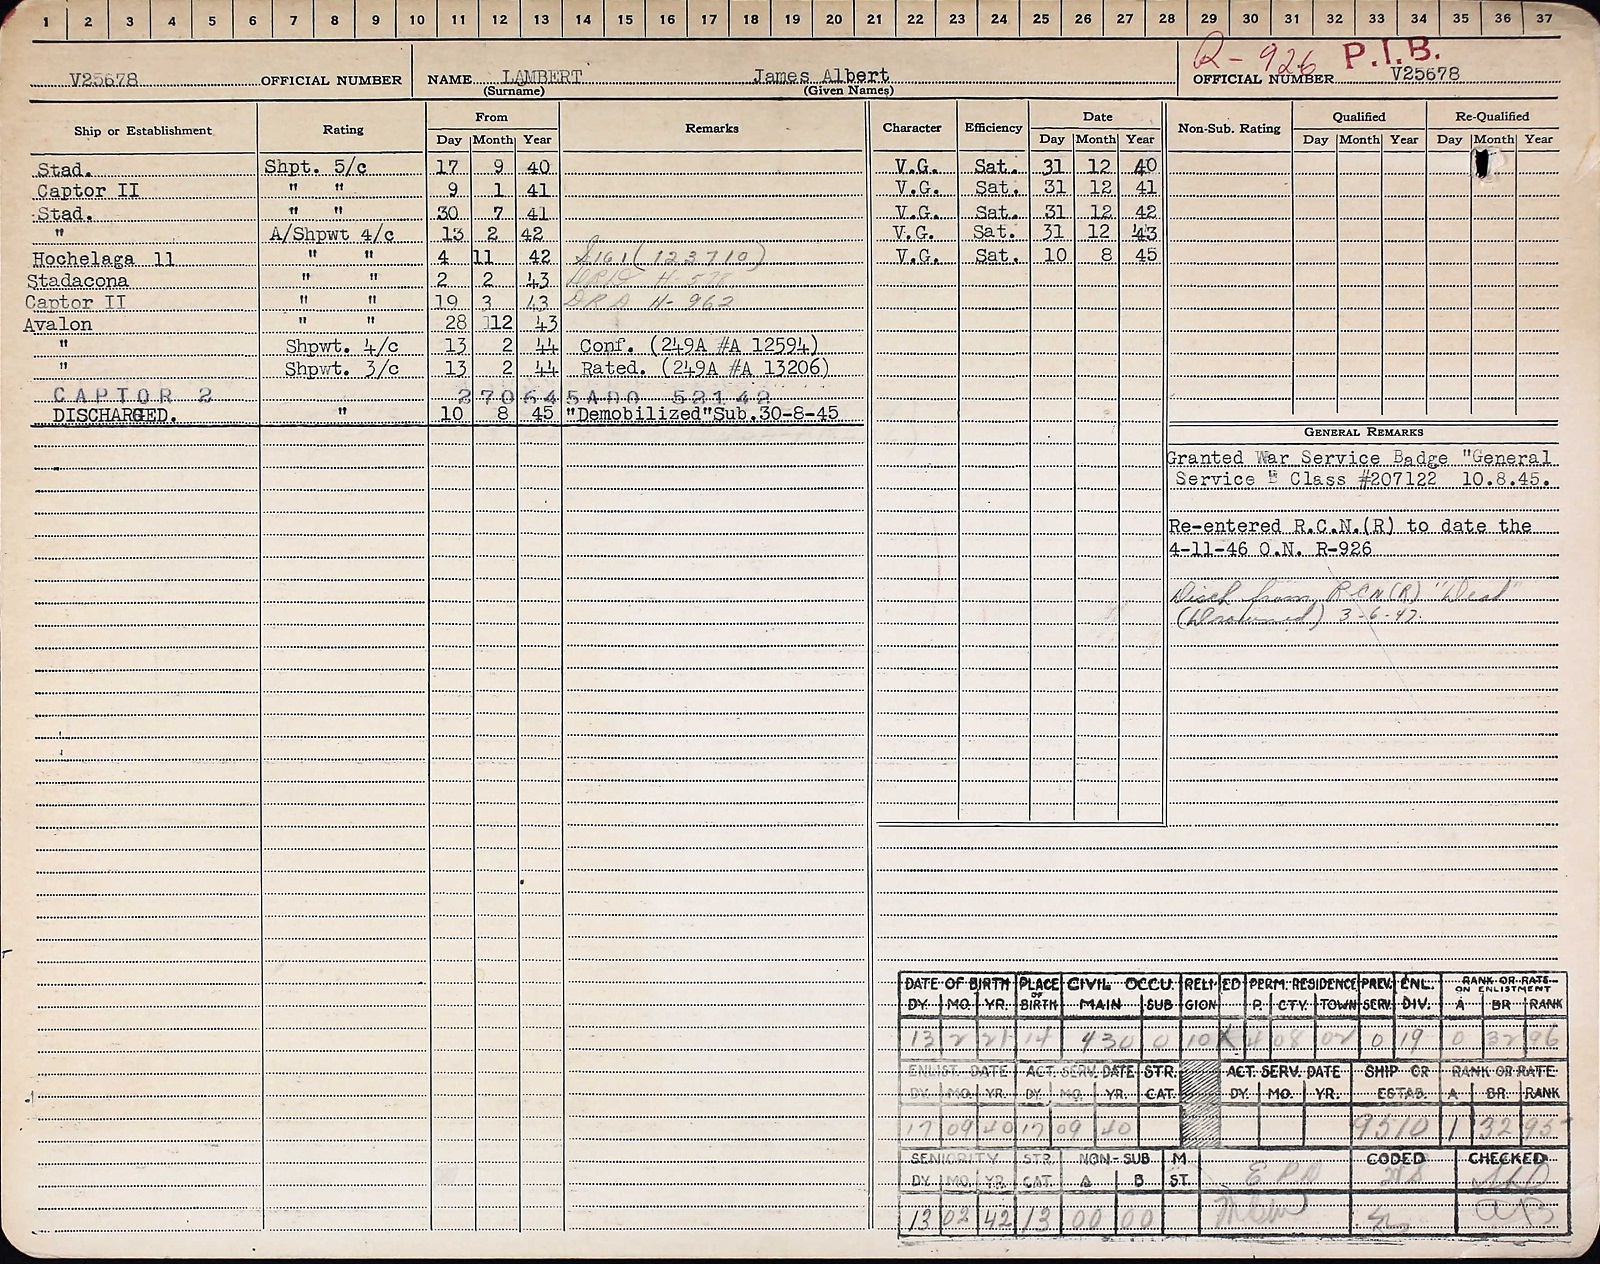 1 2 3 4 5 6 7 8 9 10 11 12 13 14 15 16 17 18 19 20 21 22 23 24 25 26 27 28 29 30 31 32 33 34 35 36 37
R-926 P.I.B.
V25678 OFFICIAL NUMBER NAME LAMBERT James Albert OFFICIAL NUMBER V25678
(Surname) (Given Names)
Ship or Establishment Rating From Remarks Character Efficiency Date Non-Sub. Rating Qualified Re-Qualified
Day Month Year Day Month Year Day Month Year Day Month Year
Stad. Shpt. 5/c 17 9 40 V.G. Sat. 31 12 40
Captor II " " 9 1 41 V.G. Sat. 31 12 41
Stad. " " 30 7 41 V.G. Sat. 31 12 42
" A/Shpwt 4/c 13 2 42 V.G. Sat. 31 12 43
Hochelaga 11 " " 4 11 42 S161 (123710) V.G. Sat. 10 8 45
Stadacona " " 2 2 43
Captor II " " 19 3 43 DRD H-962
Avalon " " 28 12 43
" Shpwt. 4/c 13 2 44 Conf. (249A #A 12594)
" Shpwt. 3/c 13 2 44 Rated. (249A #A 13206)
CAPTOR 2 270645 52142
DISCHARGED. " 10 8 45 "Demobilized"Sub.30-8-45
GENERAL REMARKS
Granted War Service Badge "General
Service " Class #207122 10.8.45.
Re-entered R.C.N.(R) to date the
4-11-46 O.N. R-926
Disch from RCN(R) "Dead"
(Drowned) 3-6-47.
DATE OF BIRTH PLACE OF BIRTH CIVIL OCCU. RELIGION ED PERM. RESIDENCE PREV. SERV. ENL. DIV. RANK OR RATE ON ENLISTMENT
DY. MO. YR. MAIN SUB P. CTY. TOWN A BR RANK
13 2 21 14 430 0 10 X 4 08 02 0 19 0 32 96
ENLIST. DATE ACT. SERV. DATE STR. CAT. ACT. SERV. DATE SHIP OR ESTAB. RANK OR RATE
DY. MO. YR. DY. MO. YR. DY. MO. YR. A BR. RANK
17 09 40 17 09 40 9510 1 32 95
SENIORITY STR. CAT. NON-SUB M ST. CODED CHECKED
DY. MO. YR. A B
13 02 42 13 00 00